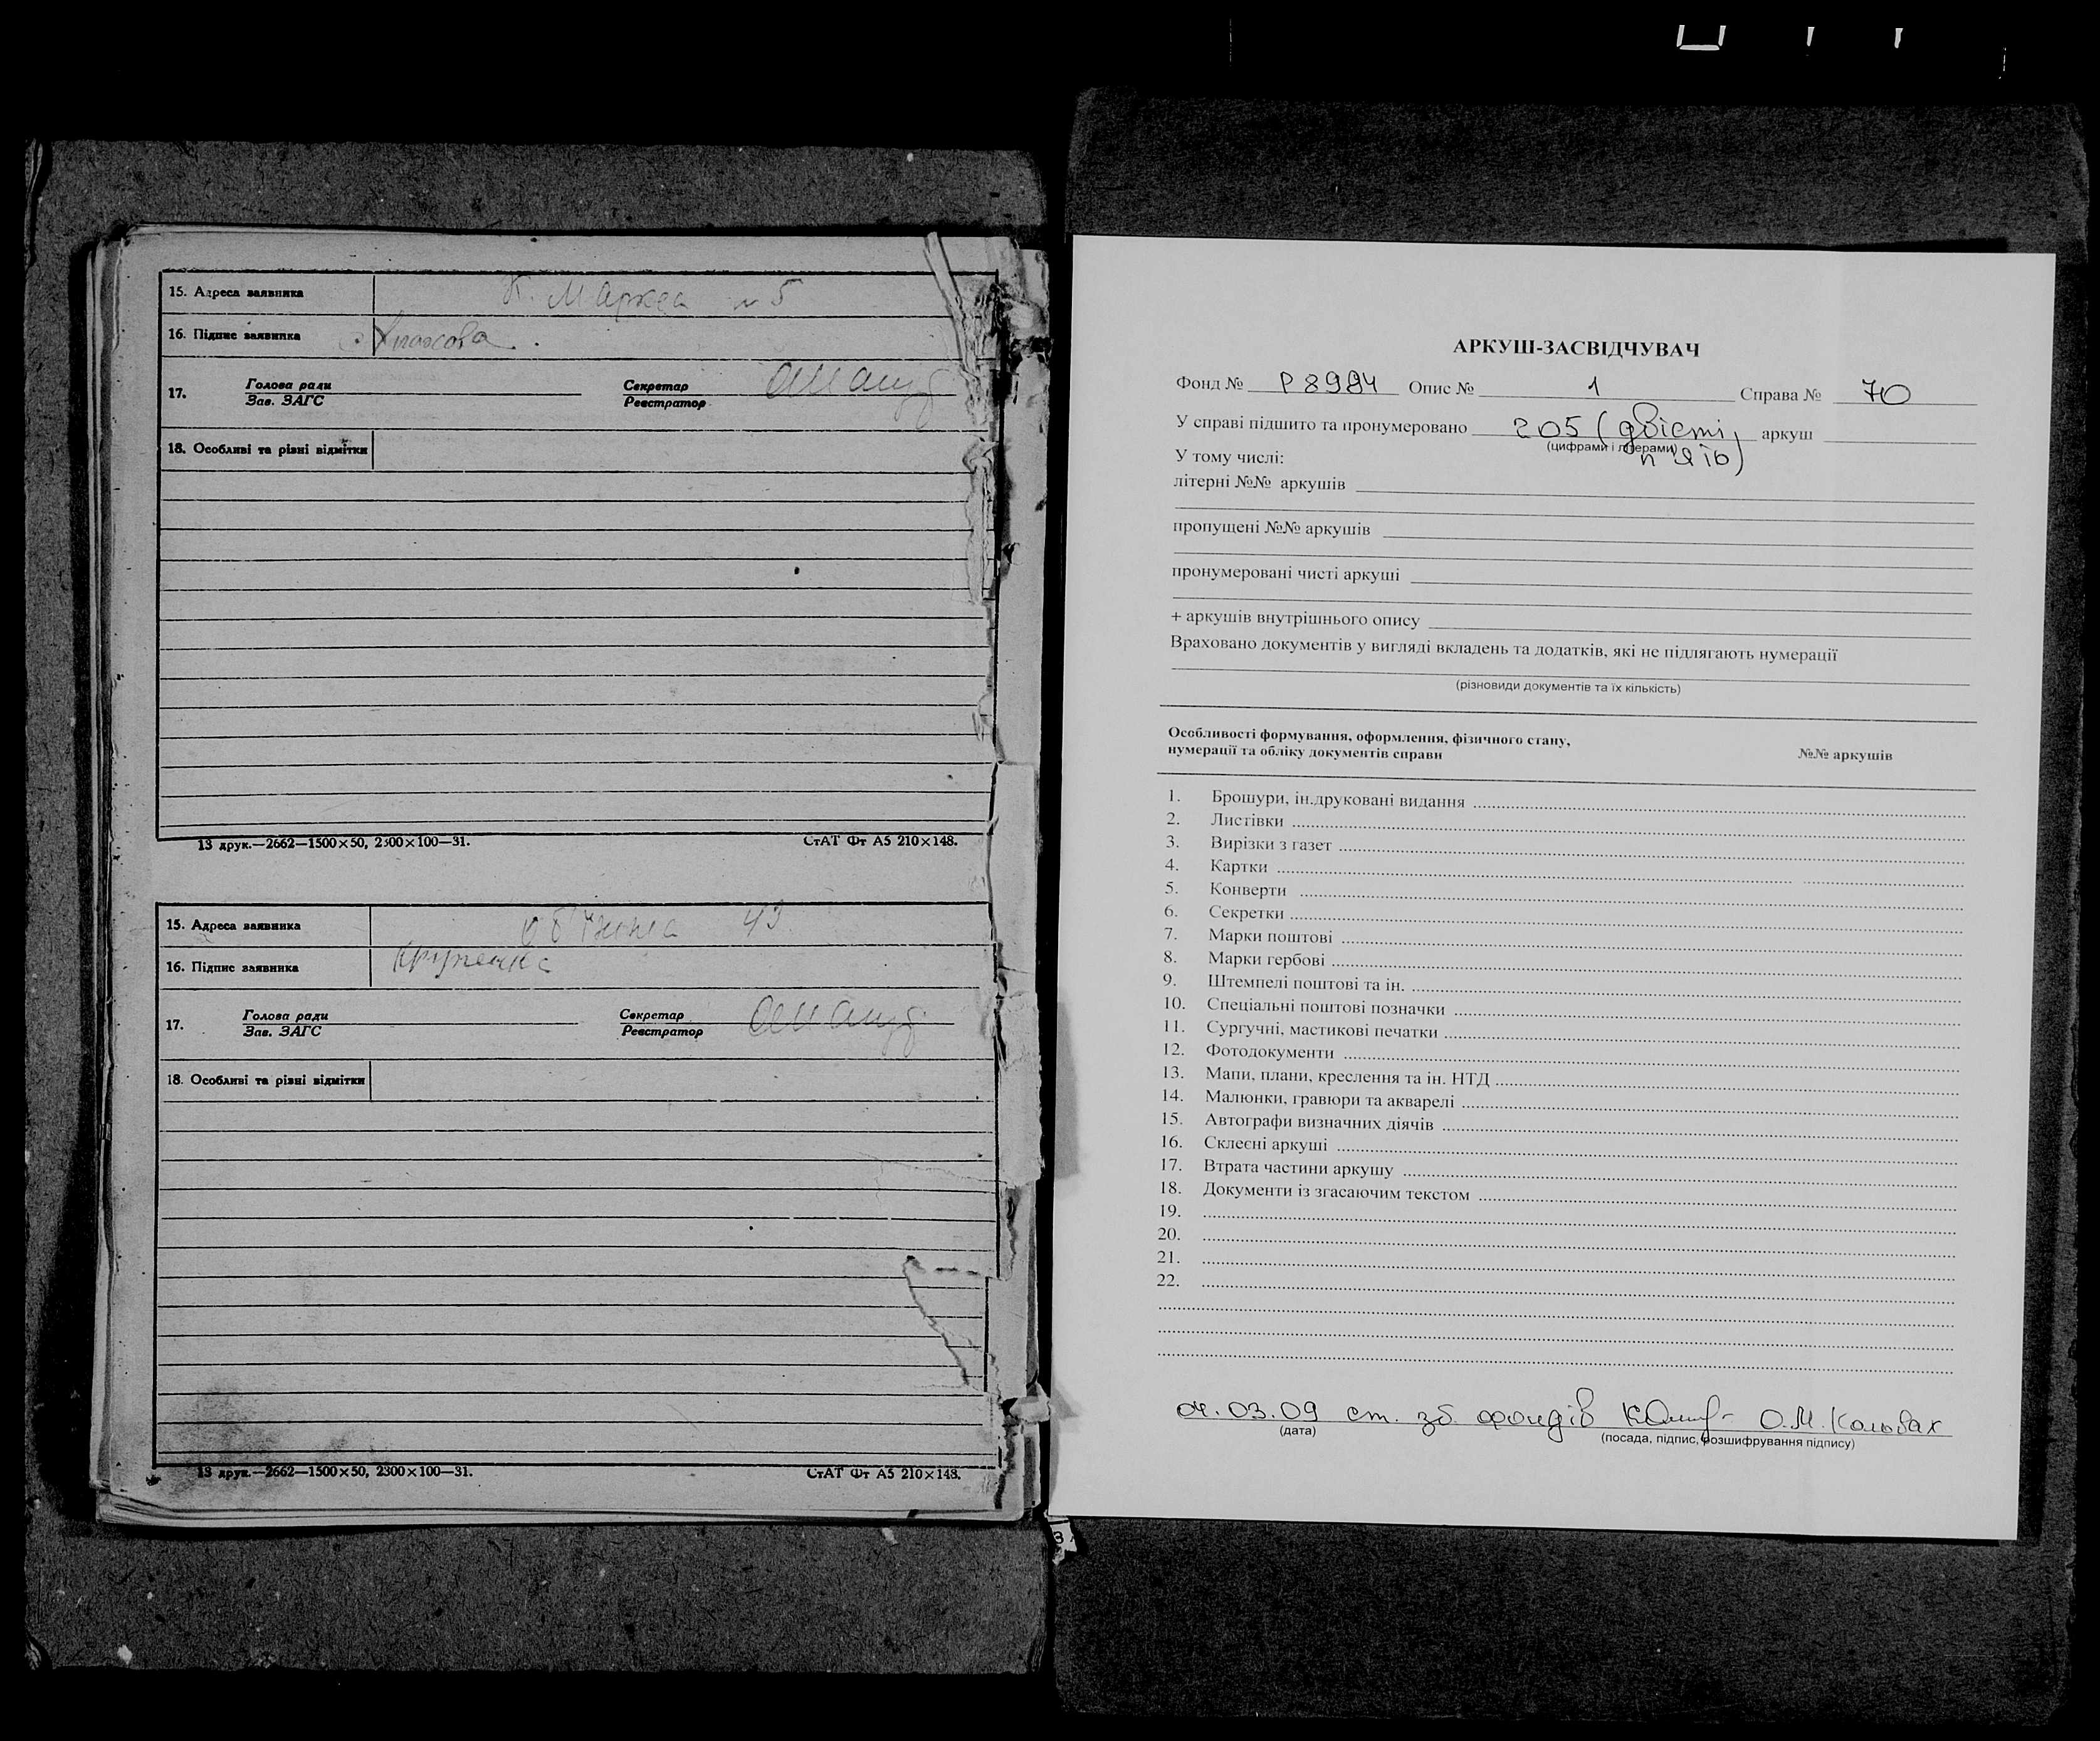 15. Адреса заявника К. Маркса № 5
16. Підпис заявника
17. Голова ради Секретар
Зав. ЗАГС Реєстратор
18. Особливі та різні відмітки
13 друк.—2662—1500×50, 2300×100—31. СтАТ Фт А5 210×148.
15. Адреса заявника 43
16. Підпис заявника
17. Голова ради Секретар
Зав. ЗАГС Реєстратор
18. Особливі та різні відмітки
13 друк.—2662—1500×50, 2300×100—31. СтАТ Фт А5 210×148.
АРКУШ-ЗАСВІДЧУВАЧ
Фонд № Р 8984 Опис № 1 Справа № 70
У справі підшито та пронумеровано 205 (двісті аркуш
(цифрами і літерами)
п'ять)
У тому числі:
літерні №№ аркушів
пропущені №№ аркушів
пронумеровані чисті аркуші
+ аркушів внутрішнього опису
Враховано документів у вигляді вкладень та додатків, які не підлягають нумерації
(різновиди документів та їх кількість)
Особливості формування, оформлення, фізичного стану,
нумерації та обліку документів справи №№ аркушів
1. Брошури, ін.друковані видання
2. Листівки
3. Вирізки з газет
4. Картки
5. Конверти
6. Секретки
7. Марки поштові
8. Марки гербові
9. Штемпелі поштові та ін.
10. Спеціальні поштові позначки
11. Сургучні, мастикові печатки
12. Фотодокументи
13. Мапи, плани, креслення та ін. НТД
14. Малюнки, гравюри та акварелі
15. Автографи визначних діячів
16. Склеєні аркуші
17. Втрата частини аркушу
18. Документи із згасаючим текстом
19.
20.
21.
22.
04.03.09 ст. зб. фондів О.М. Кольбах
(дата) (посада, підпис, розшифрування підпису)